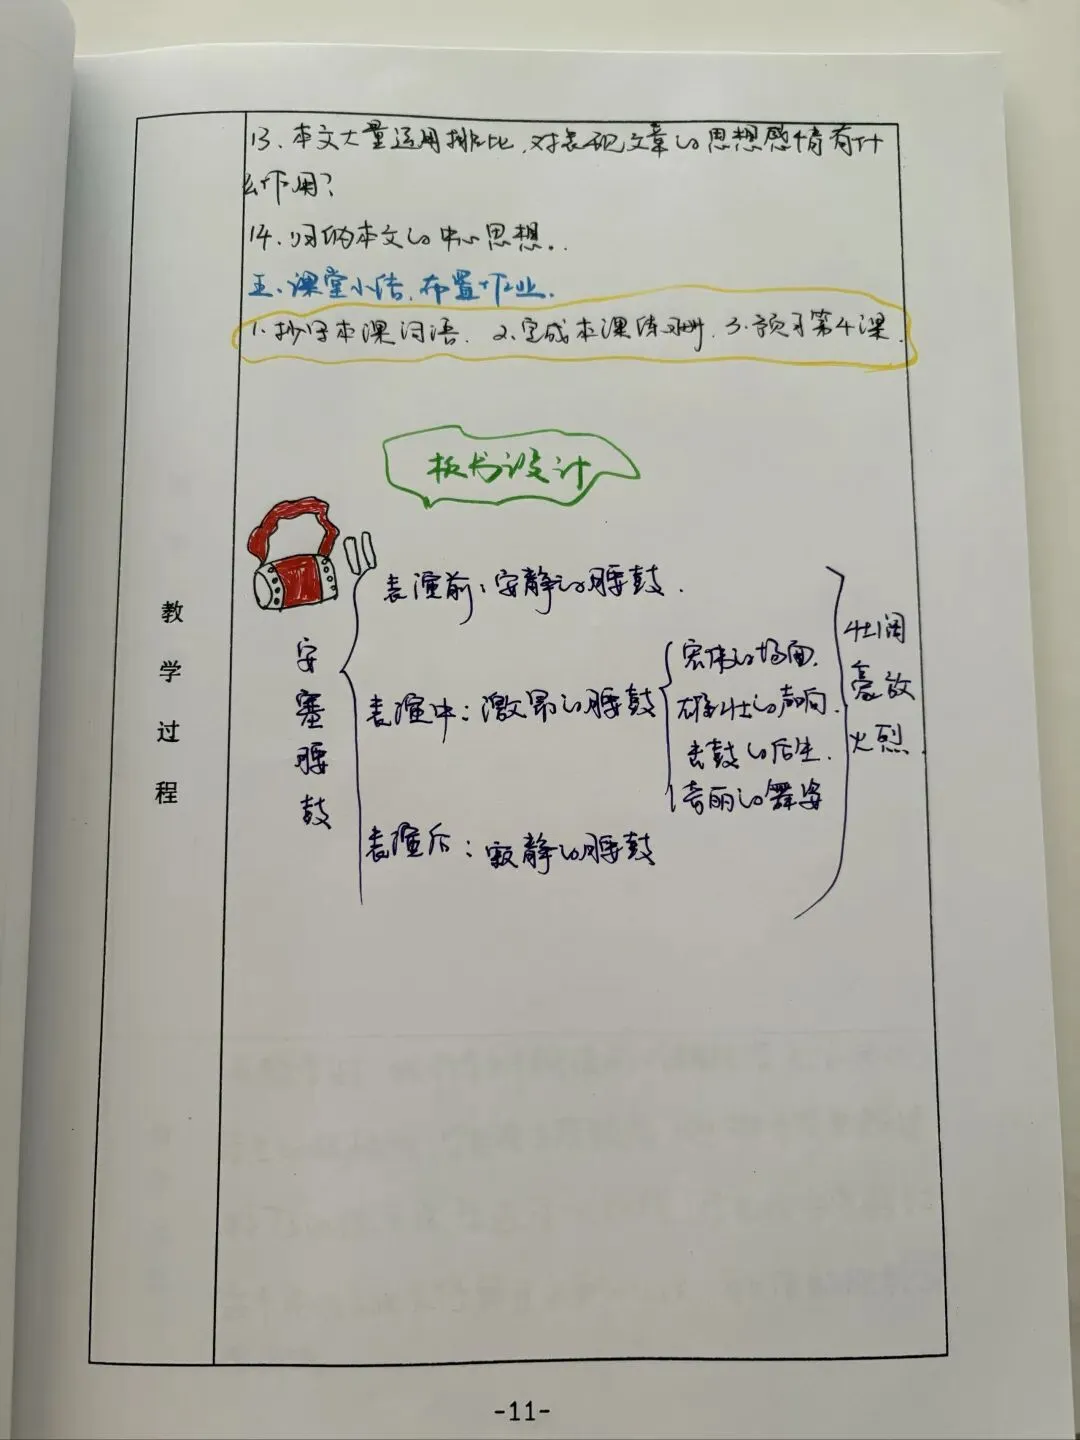 13、本文大量运用排比,对表现文章的思想感情有什
么作用?
14、归纳本文的中心思想。
五、课堂小结,布置作业.
1.抄写本课词语. 2.完成本课练习册. 3.预习第4课.
板书设计
教学过程
安塞腰鼓
表演前:安静的腰鼓.
表演中:激昂的腰鼓
宏伟的场面.
雄壮的声响.
击鼓的后生.
奇丽的舞姿
表演后:寂静的腰鼓
壮阔
豪放
火烈.
-11-